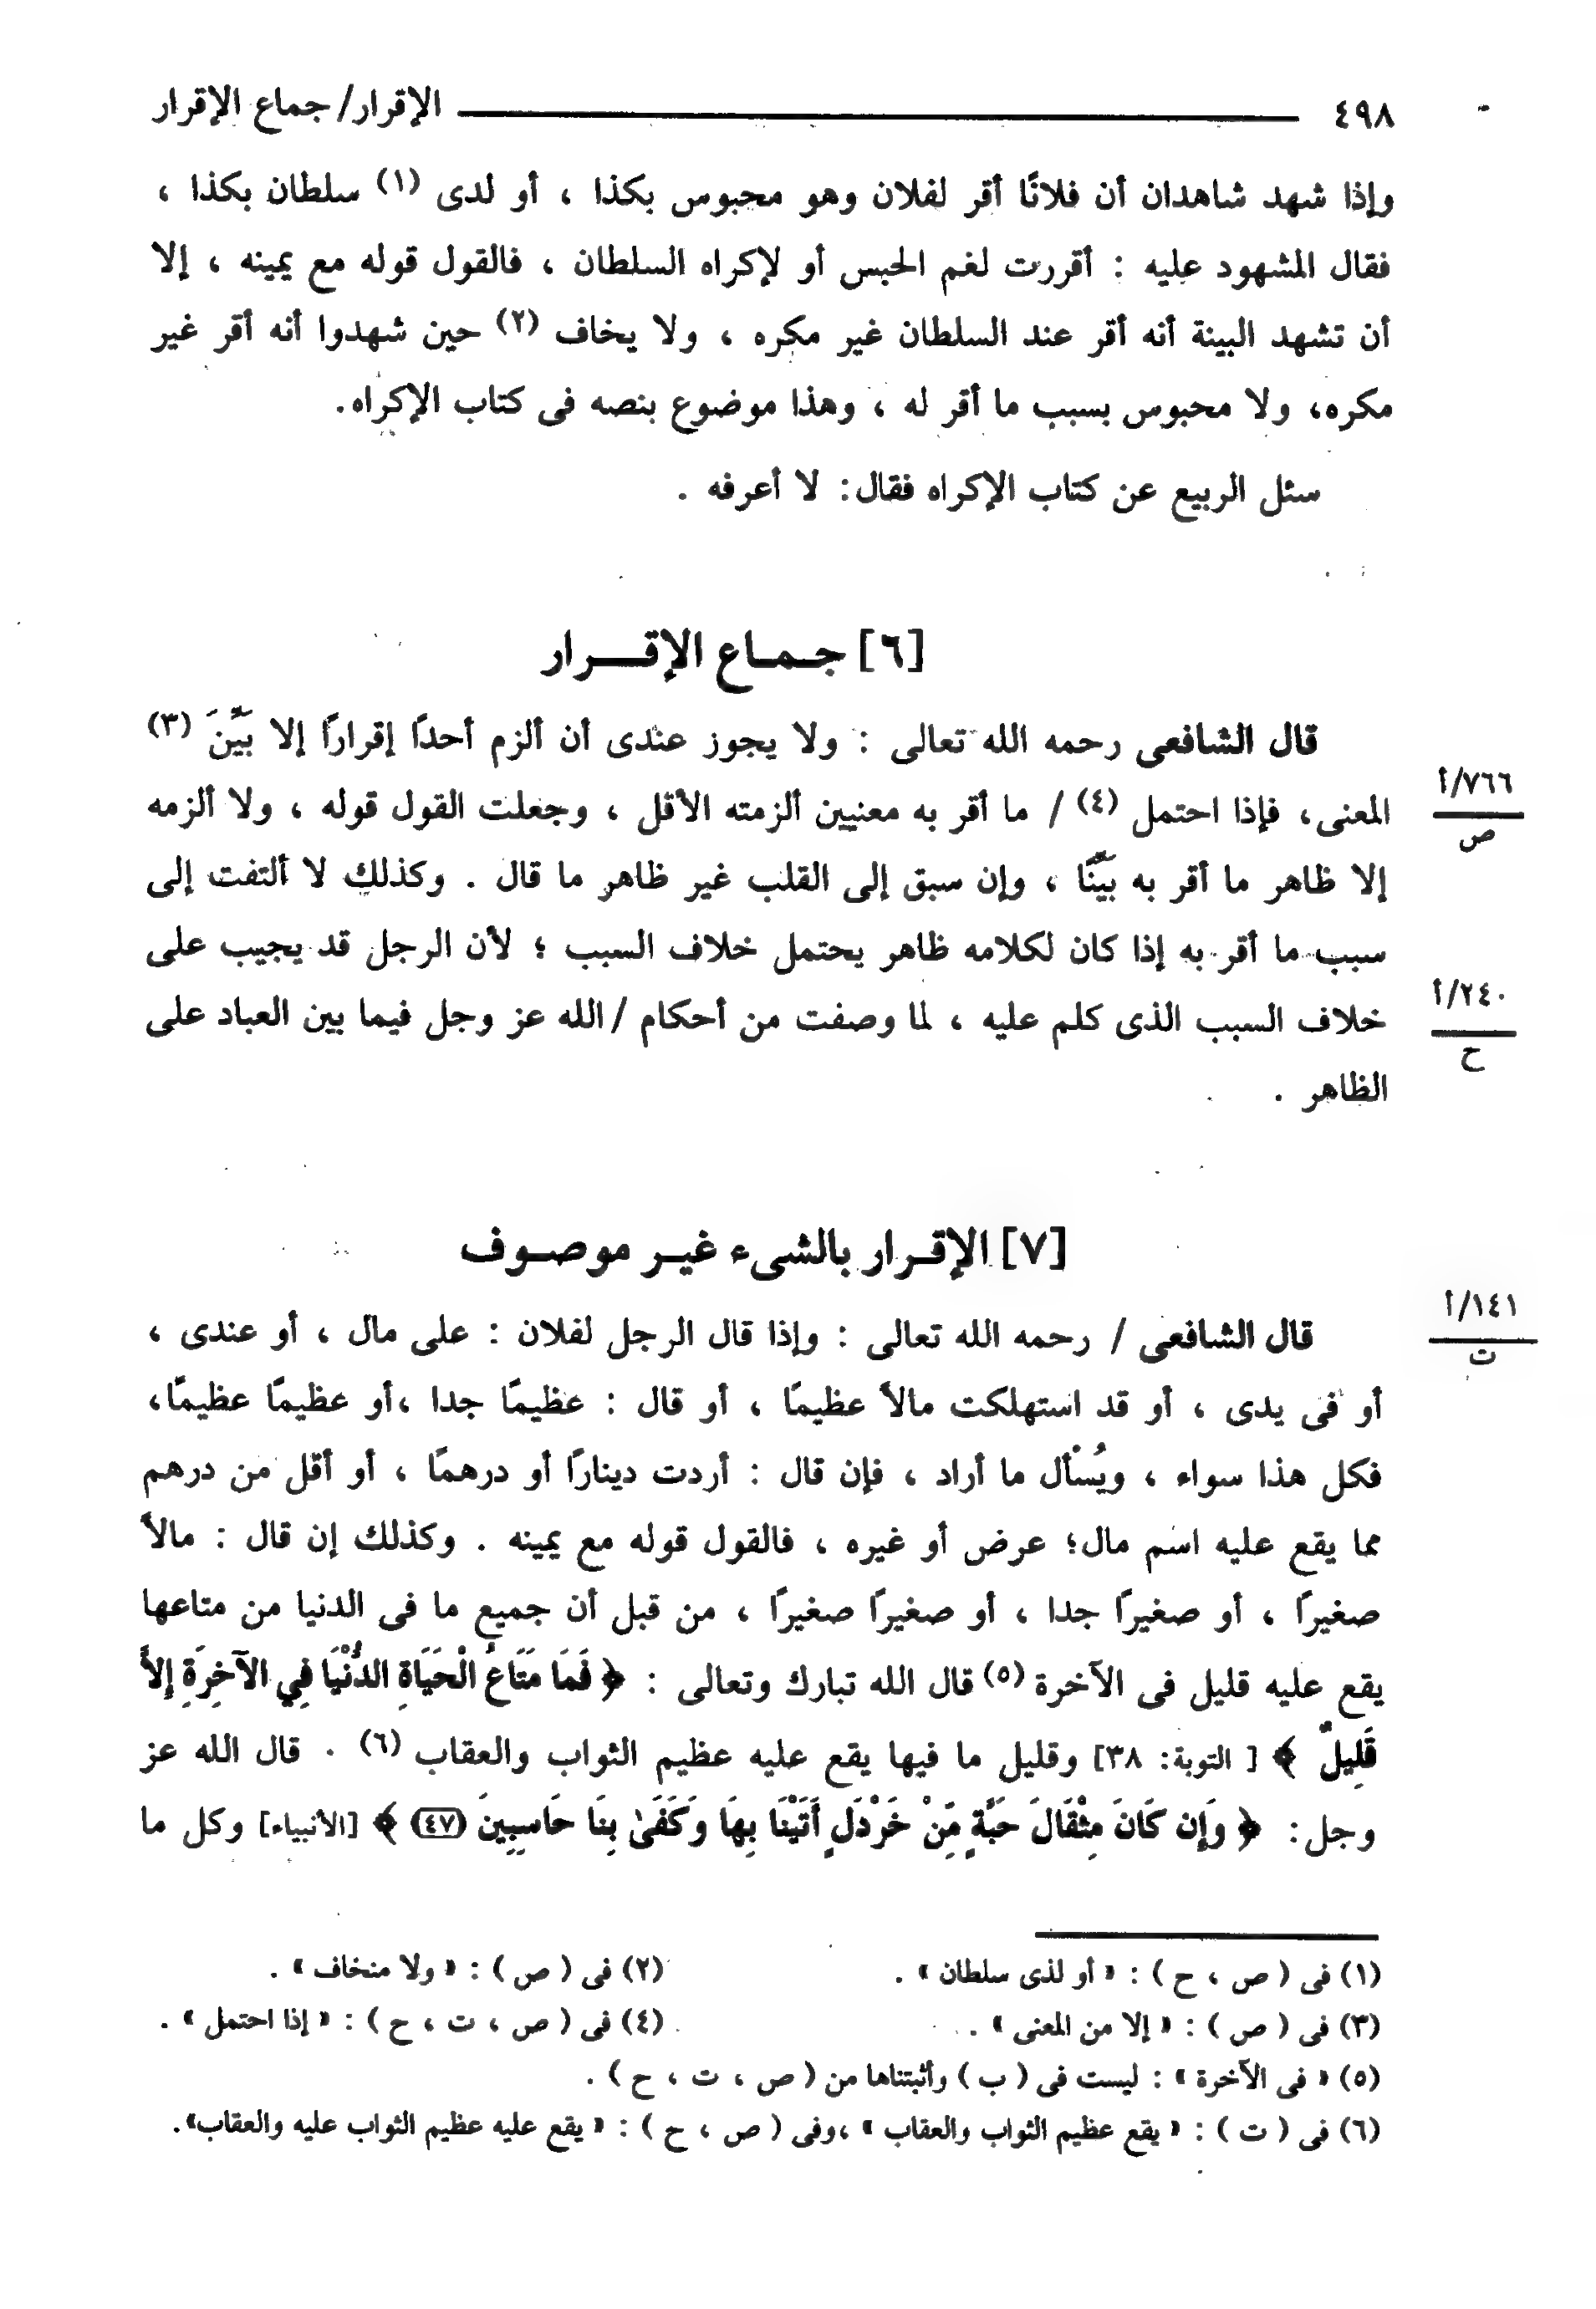 ٤٩٨ الإقرار/ جماع الإقرار
وإذا شهد شاهدان أن فلانًا أقر لفلان وهو محبوس بكذا ، أو لدى (١) سلطان بكذا ،
فقال المشهود عليه : أقررت لغم الحبس أو لإكراه السلطان ، فالقول قوله مع يمينه ، إلا
أن تشهد البينة أنه أقر عند السلطان غير مكره ، ولا يخاف (٢) حين شهدوا أنه أقر غير
مكره، ولا محبوس بسبب ما أقر له ، وهذا موضوع بنصه فى كتاب الإكراه.
سئل الربيع عن كتاب الإكراه فقال: لا أعرفه .
[٦] جـمـاع الإقــــرار
قال الشافعى رحمه الله تعالى : ولا يجوز عندى أن ألزم أحدًا إقرارًا إلا بَيِّنَ (٣)
٧٦٦/أ
ص
المعنى، فإذا احتمل (٤) / ما أقر به معنيين ألزمته الأقل ، وجعلت القول قوله ، ولا ألزمه
إلا ظاهر ما أقر به بَيِّنًا ، وإن سبق إلى القلب غير ظاهر ما قال . وكذلك لا ألتفت إلى
سبب ما أقر به إذا كان لكلامه ظاهر يحتمل خلاف السبب ؛ لأن الرجل قد يجيب على
٢٤٠/أ
ح
خلاف السبب الذى كلم عليه ، لما وصفت من أحكام /الله عز وجل فيما بين العباد على
الظاهر .
[٧] الإقـرار بالشىء غيـر موصـوف
١٤١/أ
ت
قال الشافعى / رحمه الله تعالى : وإذا قال الرجل لفلان : على مال ، أو عندى ،
أو فى يدى ، أو قد استهلكت مالاً عظيمًا ، أو قال : عظيمًا جدا ،أو عظيمًا عظيمًا،
فكل هذا سواء ، ويُسْأل ما أراد ، فإن قال : أردت دينارًا أو درهمًا ، أو أقل من درهم
مما يقع عليه اسم مال؛ عرض أو غيره ، فالقول قوله مع يمينه . وكذلك إن قال : مالاً
صغيرًا ، أو صغيرًا جدا ، أو صغيرًا صغيرًا ، من قبل أن جميع ما فى الدنيا من متاعها
يقع عليه قليل فى الآخرة (٥) قال الله تبارك وتعالى : ﴿ فَمَا مَتَاعُ الْحَيَاةِ الدُّنْيَا فِي الآخِرَةِ إِلاَّ
قَلِيلٌ ﴾ [ التوبة: ٣٨] وقليل ما فيها يقع عليه عظيم الثواب والعقاب (٦) . قال الله عز
وجل: ﴿ وَإِن كَانَ مِثْقَالَ حَبَّةٍ مِّنْ خَرْدَلٍ أَتَيْنَا بِهَا وَكَفَىٰ بِنَا حَاسِبِينَ (٤٧) ﴾ [الأنبياء] وكل ما
(١) فى ( ص ، ح ) : « أو لذى سلطان » . (٢) فى ( ص ) : « ولا منخاف » .
(٣) فى ( ص ) : « إلا من المعنى » . (٤) فى ( ص ، ت ، ح ) : « إذا احتمل » .
(٥) « فى الآخرة » : ليست فى ( ب ) وأثبتناها من ( ص ، ت ، ح ) .
(٦) فى ( ت ) : « يقع عظيم الثواب والعقاب » ،وفى ( ص ، ح ) : « يقع عليه عظيم الثواب عليه والعقاب».